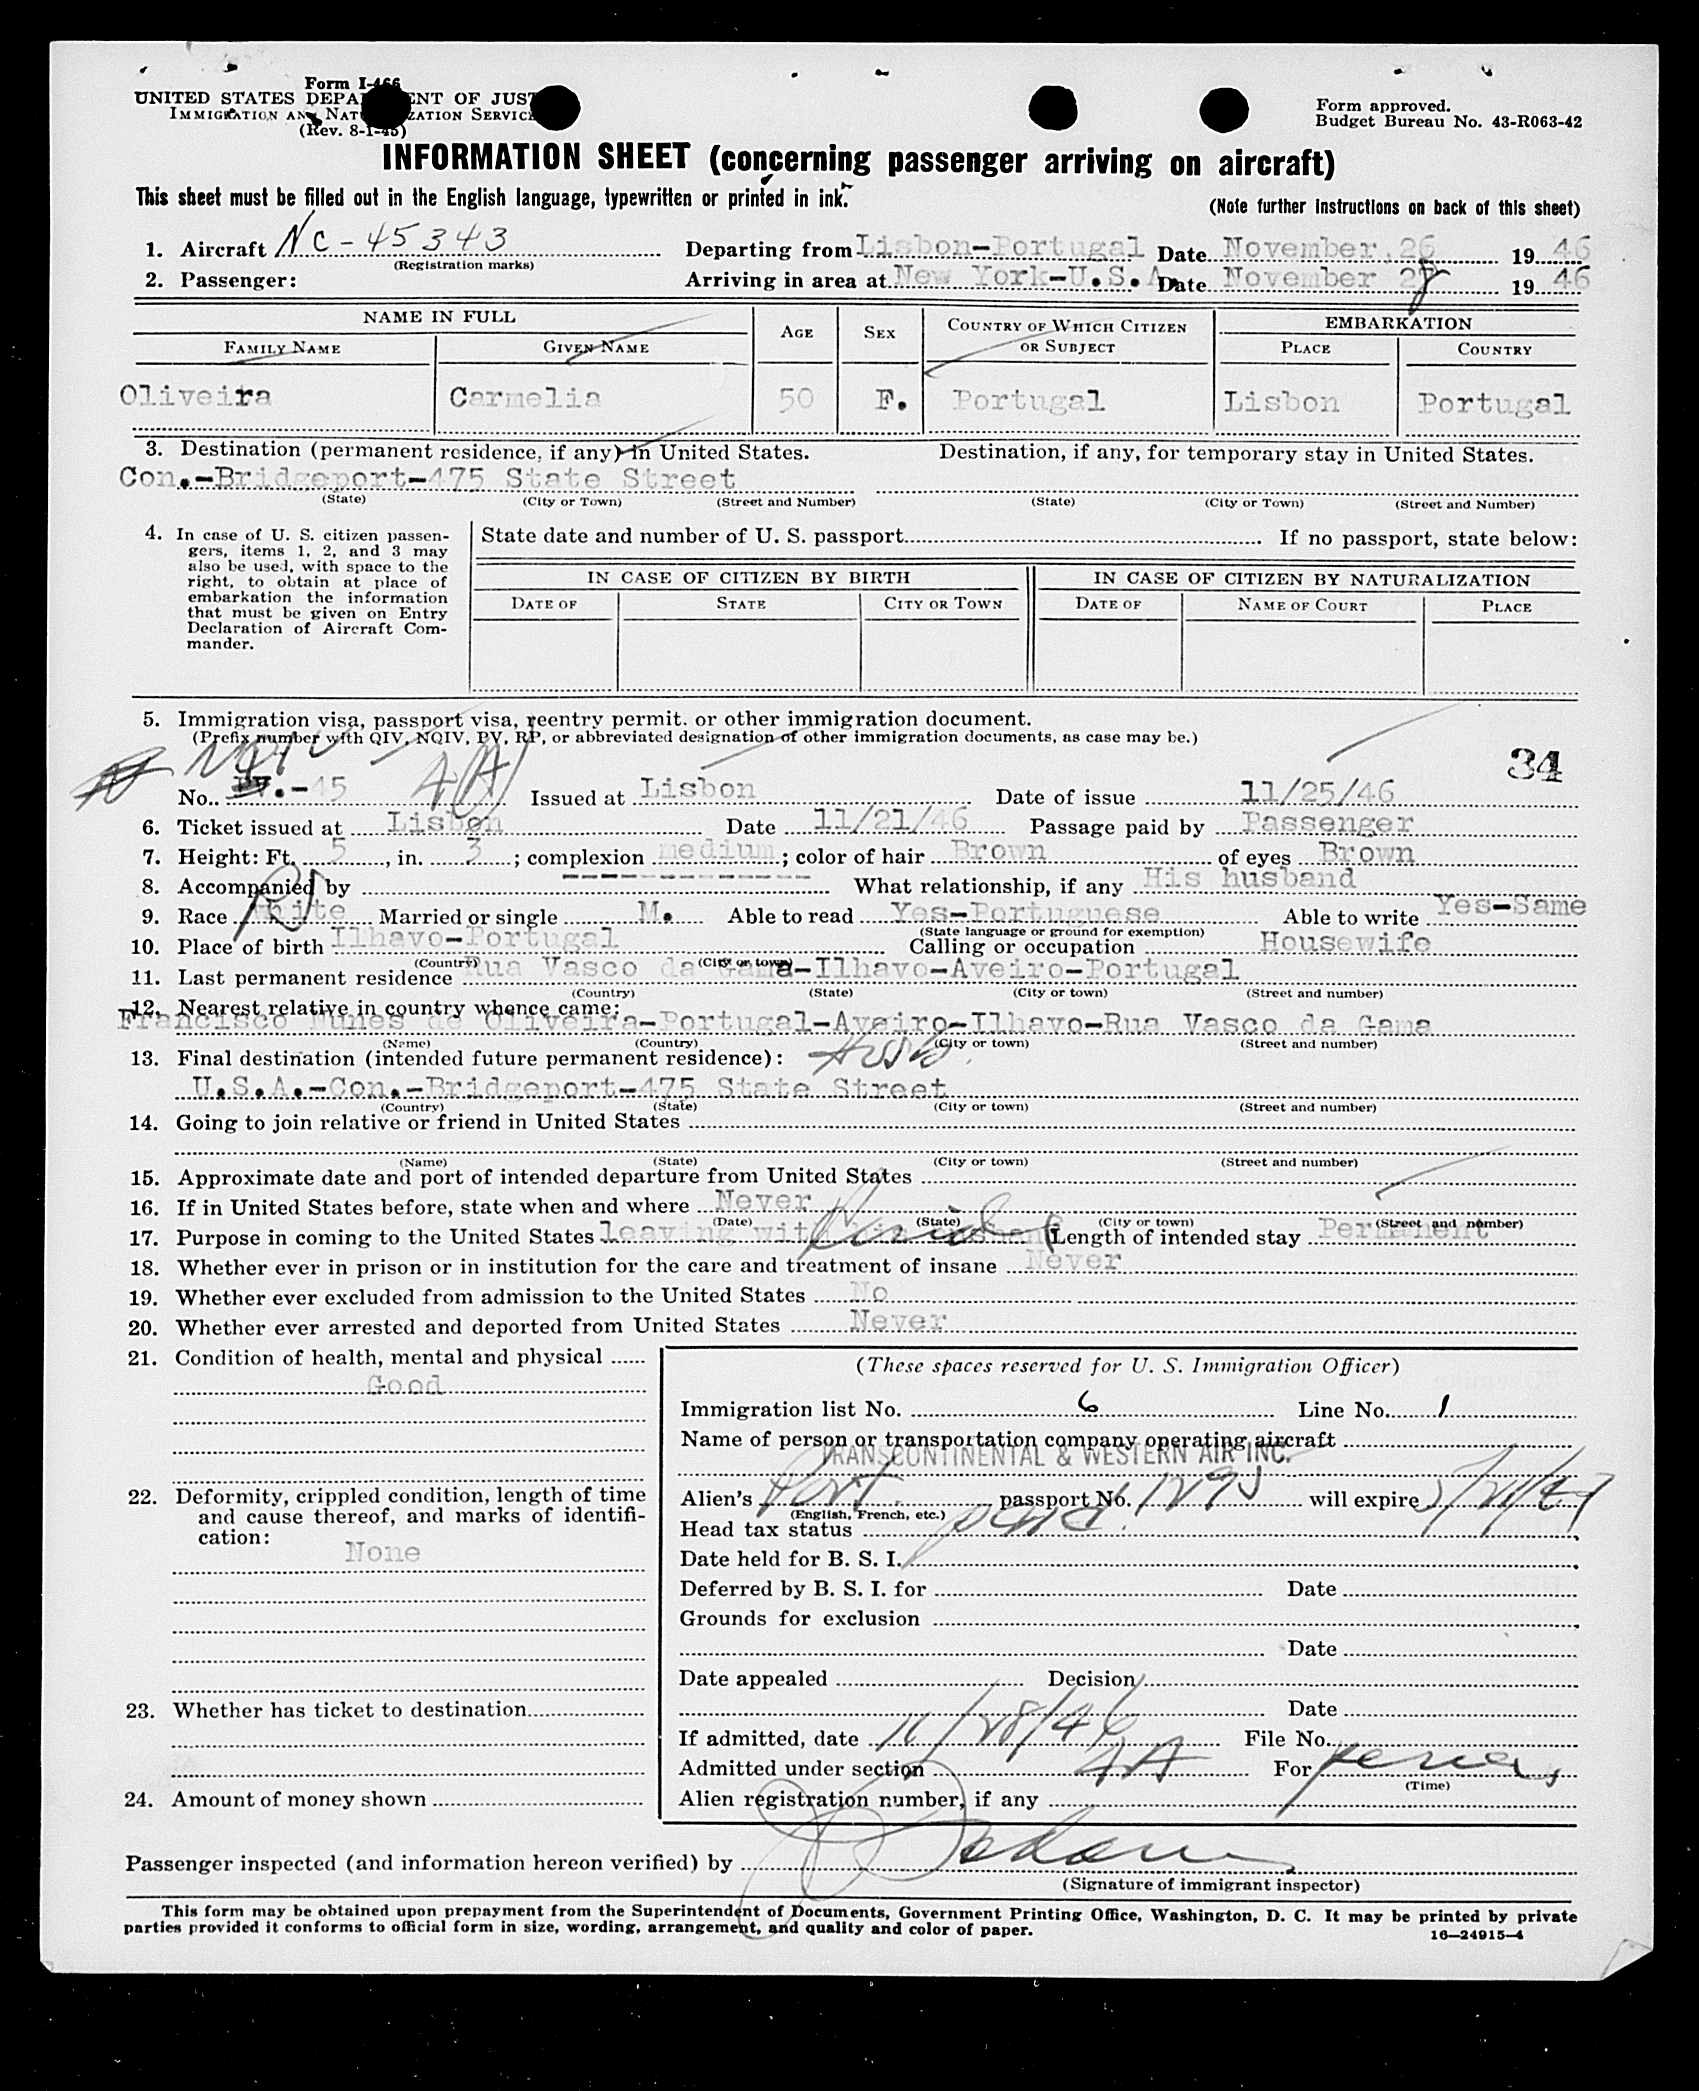 Form I-466
UNITED STATES DEPARTMENT OF JUSTICE
IMMIGRATION AND NATURALIZATION SERVICE
(Rev. 8-1-45)
Form approved.
Budget Bureau No. 43-R063-42
INFORMATION SHEET (concerning passenger arriving on aircraft)
This sheet must be filled out in the English language, typewritten or printed in ink.
(Note further instructions on back of this sheet)
1. Aircraft NC-45343 Departing from Lisbon-Portugal Date November 26 1946
(Registration marks)
2. Passenger: Arriving in area at New York-U.S.A. Date November 28 1946
NAME IN FULL AGE SEX COUNTRY OF WHICH CITIZEN OR SUBJECT EMBARKATION
FAMILY NAME GIVEN NAME PLACE COUNTRY
Oliveira Carmelia 50 F. Portugal Lisbon Portugal
3. Destination (permanent residence, if any) in United States. Destination, if any, for temporary stay in United States.
Con.-Bridgeport-475 State Street
(State) (City or Town) (Street and Number) (State) (City or Town) (Street and Number)
4. In case of U. S. citizen passen-
gers, items 1, 2, and 3 may
also be used, with space to the
right, to obtain at place of
embarkation the information
that must be given on Entry
Declaration of Aircraft Com-
mander.
State date and number of U. S. passport If no passport, state below:
IN CASE OF CITIZEN BY BIRTH IN CASE OF CITIZEN BY NATURALIZATION
DATE OF STATE CITY OR TOWN DATE OF NAME OF COURT PLACE
5. Immigration visa, passport visa, reentry permit, or other immigration document.
(Prefix number with QIV, NQIV, PV, RP, or abbreviated designation of other immigration documents, as case may be.)
NQIV 34
No. PV.-45 4(A) Issued at Lisbon Date of issue 11/25/46
6. Ticket issued at Lisbon Date 11/21/46 Passage paid by Passenger
7. Height: Ft. 5, in. 3; complexion medium; color of hair Brown of eyes Brown
8. Accompanied by ---------- What relationship, if any His husband
9. Race White Married or single M. Able to read Yes-Portuguese Able to write Yes-Same
(State language or ground for exemption)
10. Place of birth Ilhavo-Portugal Calling or occupation Housewife
(Country) (City or town)
11. Last permanent residence Rua Vasco da Gama-Ilhavo-Aveiro-Portugal
(Country) (State) (City or town) (Street and number)
12. Nearest relative in country whence came:
Francisco Nunes de Oliveira-Portugal-Aveiro-Ilhavo-Rua Vasco da Gama
(Name) (Country) (City or town) (Street and number)
13. Final destination (intended future permanent residence): Husb.
U.S.A.-Con.-Bridgeport-475 State Street
(Country) (State) (City or town) (Street and number)
14. Going to join relative or friend in United States
(Name) (State) (City or town) (Street and number)
15. Approximate date and port of intended departure from United States
16. If in United States before, state when and where Never
(Date) (State) (City or town) (Street and number)
17. Purpose in coming to the United States leaving with his husband Length of intended stay Permanent
18. Whether ever in prison or in institution for the care and treatment of insane Never
19. Whether ever excluded from admission to the United States No
20. Whether ever arrested and deported from United States Never
21. Condition of health, mental and physical
Good
22. Deformity, crippled condition, length of time
and cause thereof, and marks of identifi-
cation:
None
23. Whether has ticket to destination
24. Amount of money shown
(These spaces reserved for U. S. Immigration Officer)
Immigration list No. 6 Line No. 1
Name of person or transportation company operating aircraft
TRANSCONTINENTAL & WESTERN AIR INC.
Alien's Port. passport No. 1295 will expire
(English, French, etc.)
Head tax status paid.
Date held for B. S. I.
Deferred by B. S. I. for Date
Grounds for exclusion
Date
Date appealed Decision
Date
If admitted, date 11/28/46 File No.
Admitted under section 4A For
(Time)
Alien registration number, if any
Passenger inspected (and information hereon verified) by
(Signature of immigrant inspector)
This form may be obtained upon prepayment from the Superintendent of Documents, Government Printing Office, Washington, D. C. It may be printed by private
parties provided it conforms to official form in size, wording, arrangement, and quality and color of paper.
16—24915-4